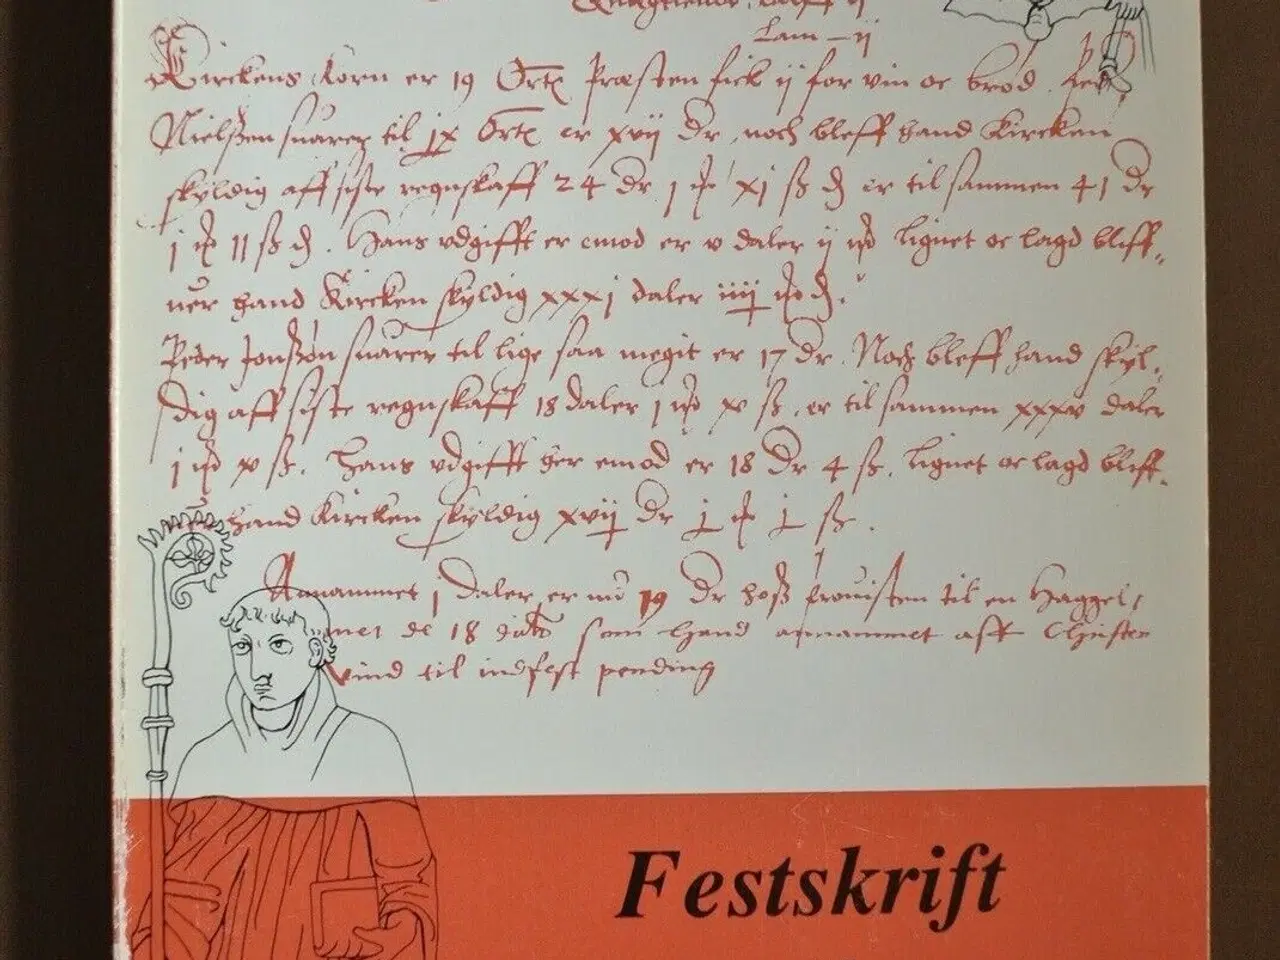 Lam – ij
Kirckens Korn er 19 Ortᵉ. Præsten fick ij for vin oc brød. Peder
Nielssen suarer til jx Ortᵉ er xvij Dr, noch bleff hand Kircken
skyldig aff siste regnskaff 24 Dr j xj ß er til sammen 41 Dr
j 11 ß. Hans vdgifft er emod er v daler ij lignet oc lagd bliff-
uer hand Kircken skyldig xxxj daler iiij
Peder Jonssøn suarer til lige saa megit er 17 Dr. Noch bleff hand skyl-
dig aff siste regnskaff 18 daler j x ß. er til sammen xxxv daler
j x ß. Hans vdgifft her emod er 18 Dr 4 ß. lignet oc lagd bliff-
hand Kircken skyldig xvij Dr j j ß.
Annammet j daler er nu 19 Dr hoss prouisten til en Haggel,
de 18 som hand annammet aff Christen
vind til indfest pending
Festskrift